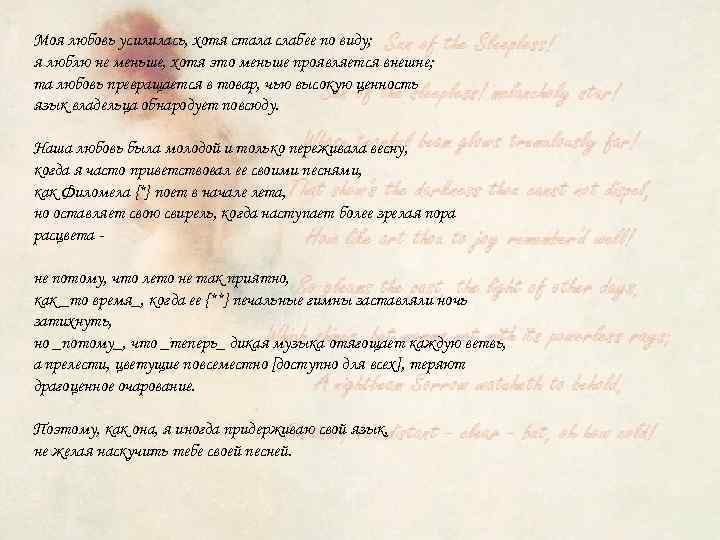 Моя любовь усилилась, хотя стала слабее по виду;
я люблю не меньше, хотя это меньше проявляется внешне;
та любовь превращается в товар, чью высокую ценность
язык владельца обнародует повсюду.
Наша любовь была молодой и только переживала весну,
когда я часто приветствовал ее своими песнями,
как Филомела {*} поет в начале лета,
но оставляет свою свирель, когда наступает более зрелая пора
расцвета -
не потому, что лето не так приятно,
как _то время_, когда ее {**} печальные гимны заставляли ночь
затихнуть,
но _потому_, что _теперь_ дикая музыка отягощает каждую ветвь,
а прелести, цветущие повсеместно [доступно для всех], теряют
драгоценное очарование.
Поэтому, как она, я иногда придерживаю свой язык,
не желая наскучить тебе своей песней.
Sun of the Sleepless!
of the sleepless! melancholy star!
beam glows tremulously far!
That show'st the darkness thou canst not dispel,
How like art thou to joy remember'd well!
So gleams the past, the light of other days,
its powerless rays;
A nightbeam Sorrow watcheth to behold,
distant - clear - but, oh how cold!